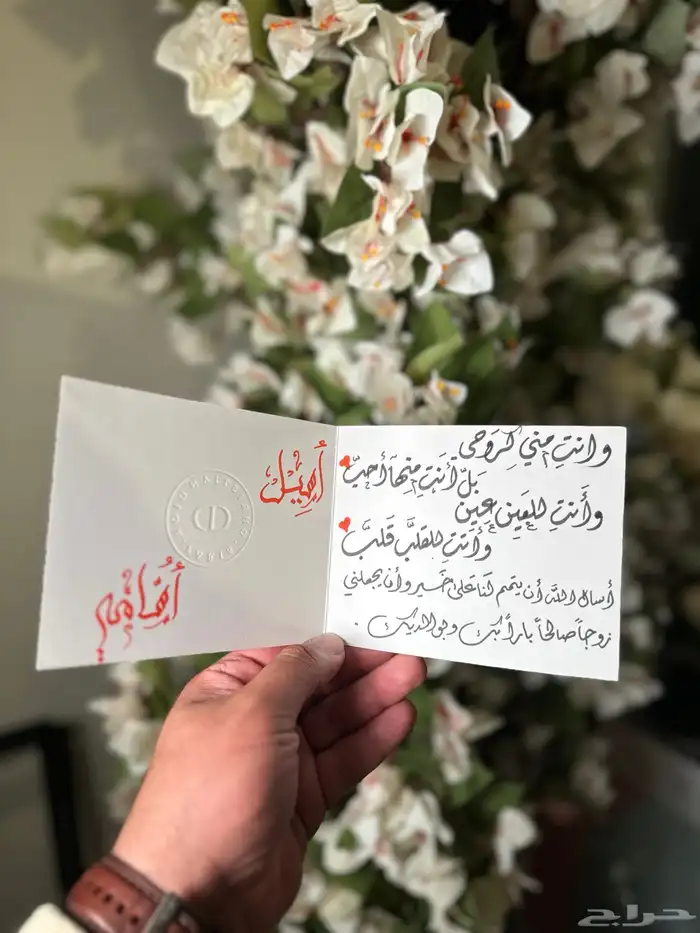 وانتِ مني كَروحي
بَلّ أنتِ مِنها أحبّ
وأنتِ للعَينِ عَين
وأنتِ للقلبِ قَلبَ
أسأل الله أن يتمم لنا على خير وأن يجعلني
زوجاً صالحاً باراً بكِ وبوالديك.
أَهِيل
حراج